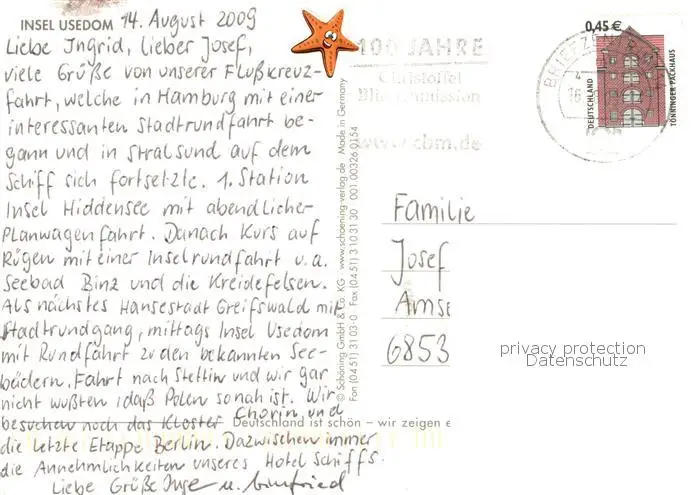 INSEL USEDOM 14. August 2009
Liebe Ingrid, lieber Josef,
viele Grüße von unserer Flußkreuz-
fahrt, welche in Hamburg mit einer
interessanten Stadtrundfahrt be-
gann und in Stralsund auf dem
Schiff sich fortsetzte. 1. Station
Insel Hiddensee mit abendlicher
Planwagenfahrt. Danach Kurs auf
Rügen mit einer Inselrundfahrt u.a.
Seebad Binz und die Kreidefelsen.
Als nächstes Hansestadt Greifswald mit
Stadtrundgang, mittags Insel Usedom
mit Rundfahrt zu den bekannten See-
bädern. Fahrt nach Stettin und wir gar
nicht wußten, daß Polen so nah ist. Wir
besuchen noch das Kloster Chorin, und
die letzte Etappe Berlin. Dazwischen immer
die Annehmlichkeiten unseres Hotelschiffs.
Liebe Grüße Inge u. Winfried
© Schöning GmbH & Co. KG · www.schoening-verlag.de Made in Germany
Fon (0451) 3103-0 · Fax (0451) 3103130 001 00326 0154
Deutschland ist schön – wir zeigen e
100 JAHRE
Christoffel
Blindenmission
www.cbm.de
BRIEFZENTRUM
0,45 €
DEUTSCHLAND
TÖNNINGER PACKHAUS
Familie
Josef
Amse
6853
privacy protection
Datenschutz